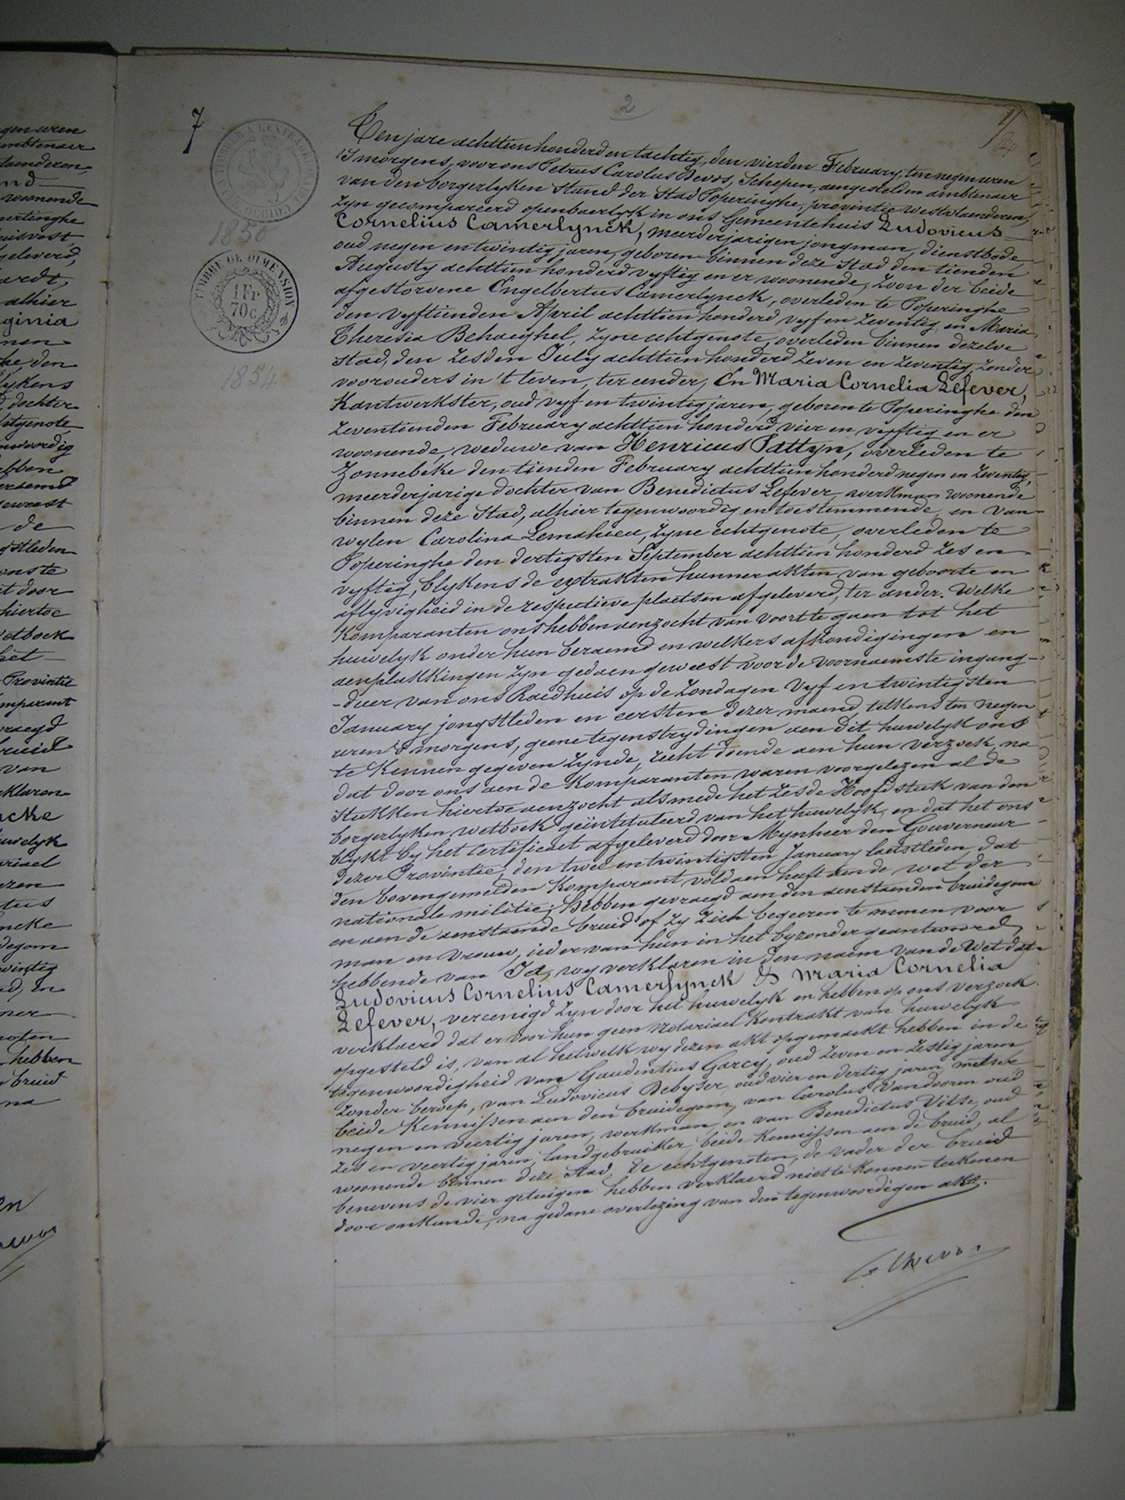 7
2
Ten jare achttien honderd en tachtig, den vierden February, ten negen uren
's morgens, voor ons Petrus Carolus Devos, Schepen, aengestelden ambtenaer
van den borgerlyken stand der Stad Poperinghe, provintie Westvlaenderen,
zyn gecompareerd openbaerlyk in ons Gemeentehuis Ludovicus
Cornelius Camerlynck, meerderjarigen jongman, dienstbode,
oud negen en twintig jaren, geboren binnen deze Stad den tienden
Augusty achttien honderd vyftig en er woonende, zoon der beide
afgestorvene Engelbertus Camerlynck, overleden te Poperinghe
den vyftienden April achttien honderd vyf en zeventig en Maria
Theresia Behaeghel, zyne echtgenote, overleden binnen dezelve
Stad, den zesden July achttien honderd zeven en zeventig, zonder
voorouders in 't leven, ter eender, En Maria Cornelia Lefever,
Kantwerkster, oud vyf en twintig jaren, geboren te Poperinghe den
zeventienden February achttien honderd vier en vyftig en er
woonende, weduwe van Henricus Pattyn, overleden te
Zonnebeke den tienden February achttien honderd negen en zeventig,
meerderjarige dochter van Benedictus Lefever, werkman woonende
binnen deze Stad, alhier tegenwoordig en toestemmende, en van
wylen Carolina Lemahieu, zyne echtgenote, overleden te
Poperinghe den dertigsten September achttien honderd zes en
vyftig, blykens de extrakten hunner akten van geboorte en
aflyvigheid in de respectieve plaetsen afgeleverd, ter ander. Welke
Komparanten ons hebben aenzocht van voorts te gaen tot het
huwelyk onder hun beraemd en welkers afkondigingen en
aenplakkingen zyn gedaen geweest voor de voornaemste ingang-
-deur van ons Raedhuis op de zondagen vyf en twintigsten
January jongstleden en eersten dezer maend telkens ten negen
uren 's morgens, geene tegenstrydingen aen dit huwelyk ons
te Kennen gegeven zynde, recht doende aen hun verzoek, na
dat door ons aen de Komparanten waren voorgelezen al de
stukken hiertoe aenzocht alsmede het zesde Hoofdstuk van den
borgerlyken wetboek geïntituleerd van het huwelyk, en dat het ons
blykt by het Certificaet afgeleverd door Mynheer den Gouverneur
dezer Provintie, den twee en twintigsten January laetstleden, dat
den bovengemelden Komparant voldaen heeft aen de wet der
nationale militie; hebben gevraegd aen den aenstaenden bruidegom
en aen de aenstaende bruid of zy zich begeeren te nemen voor
man en vrouw, ieder van hun in het byzonder geantwoord
hebbende van Ja, wy verklaren in den naem van de Wet dat
Ludovicus Cornelius Camerlynck & Maria Cornelia
Lefever, vereenigd zyn door het huwelyk en hebben op ons verzoek
verklaerd dat er voor hun geen notariael Kontrakt van huwelyk
opgesteld is, van al hetwelk wy dezen akt opgemaekt hebben in de
tegenwoordigheid van Gaudentius Garcy, oud zeven en zestig jaren
zonder beroep, van Ludovicus Debyser oud vier en dertig jaren
beide Kennissen aen den bruidegom, van Carolus Vandooren oud
negen en veertig jaren, werkman en van Benedictus Vitse, oud
zes en veertig jaren, landgebruiker, beide Kennissen aen de bruid, al
woonende binnen deze Stad, De echtgenoten, de vader der bruid
benevens de vier getuigen hebben verklaerd niet te konnen teekenen
door onkunde, na gedane overlezing van den tegenwoordigen akt.
TIMBRE DE DIMENSION
1 Fr
70 c.
1854